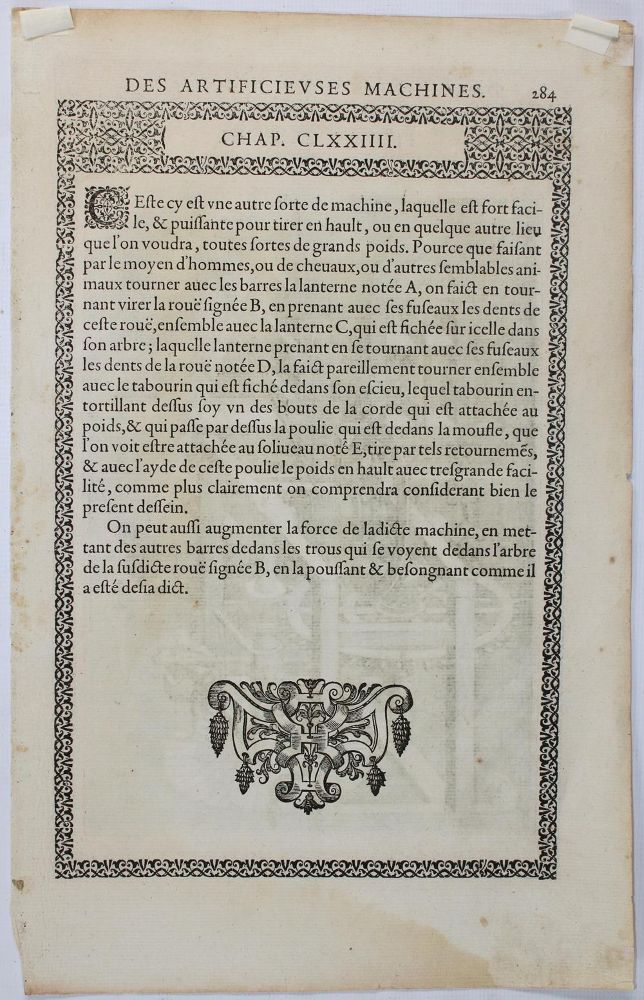 DES ARTIFICIEVSES MACHINES. 284
CHAP. CLXXIIII.
CEſte cy eſt vne autre ſorte de machine, laquelle eſt fort faci-
le, & puiſſante pour tirer en hault, ou en quelque autre lieu
que l'on voudra, toutes ſortes de grands poids. Pource que faiſant
par le moyen d'hommes, ou de cheuaux, ou d'autres ſemblables ani-
maux tourner auec les barres la lanterne notée A, on faict en tour-
nant virer la rouë ſignée B, en prenant auec ſes fuſeaux les dents de
ceſte rouë, enſemble auec la lanterne C, qui eſt fichée ſur icelle dans
ſon arbre; laquelle lanterne prenant en ſe tournant auec ſes fuſeaux
les dents de la rouë notée D, la faict pareillement tourner enſemble
auec le tabourin qui eſt fiché dedans ſon eſcieu, lequel tabourin en-
tortillant deſſus ſoy vn des bouts de la corde qui eſt attachée au
poids, & qui paſſe par deſſus la poulie qui eſt dedans la moufle, que
l'on voit eſtre attachée au ſoliueau noté E, tire par tels retournemẽs,
& auec l'ayde de ceſte poulie le poids en hault auec treſgrande faci-
lité, comme plus clairement on comprendra conſiderant bien le
preſent deſſein.
On peut auſſi augmenter la force de ladicte machine, en met-
tant des autres barres dedans les trous qui ſe voyent dedans l'arbre
de la ſuſdicte rouë ſignée B, en la pouſſant & beſongnant comme il
a eſté deſia dict.